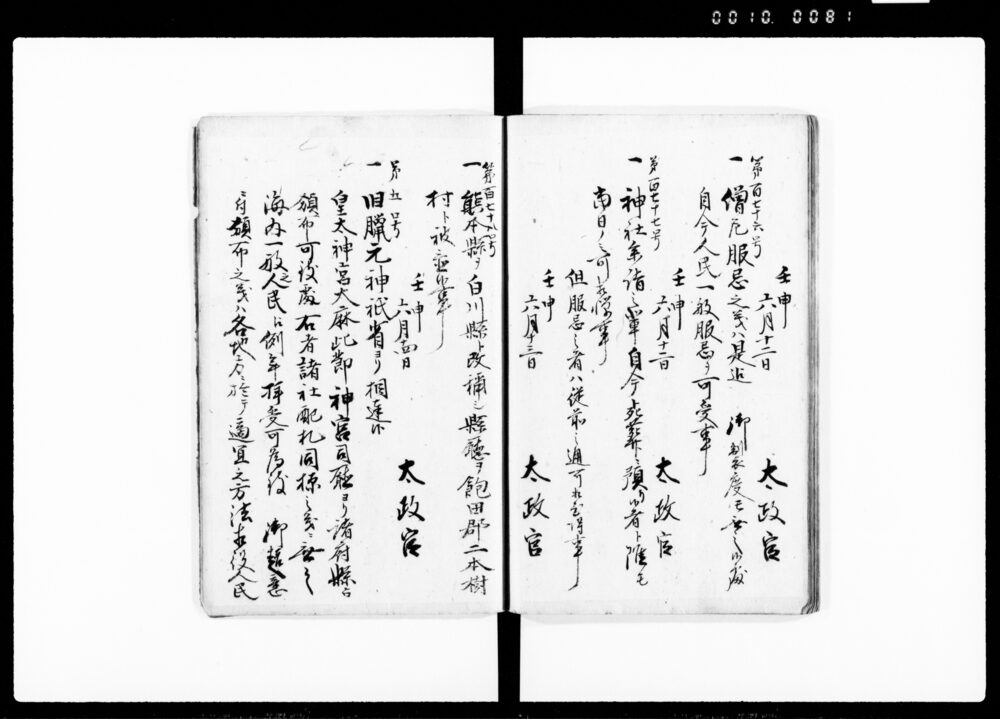 0010.0081
第百七十六号
壬申
六月十二日
太政官
一僧尼服忌之義ハ是迄　御制度モ無之候處
自今人民一般服忌ヲ可受事
第百七十七号
壬申
六月十二日
太政官
一神社参詣之輩自今死葬ニ預リ候者ト雖モ
当日ノミ可相憚事
但服忌之者ハ従前之通可相心得事
壬申
六月十三日
太政官
第百七十八号
一熊本縣ヲ白川縣ト改稱シ縣廳ヲ飽田郡二本樹
村ト被定候事
壬申
六月十四日
太政官
第五号
一旧臘元神祇省ヨリ相達候
皇太神宮大麻此節神宮司廳ヨリ諸府縣ヘ
頒布可致處右者諸社配札同様之義ニ無之
海内一般之人民ヘ例年拝受可為致　御趣意
ニ付頒布之義ハ各地方ニ於テ適宜之方法相設人民